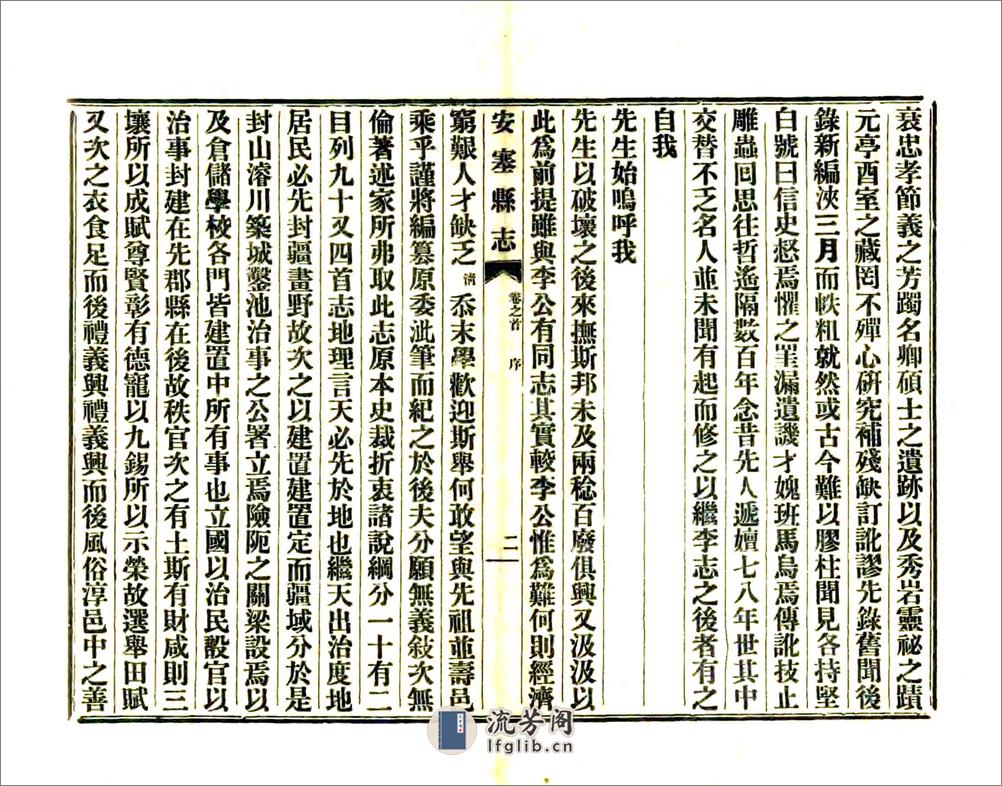 哀忠孝節義之芳躅名卿碩士之遺跡以及秀岩靈祕之蹟
元亭酉室之藏罔不殫心硏究補殘缺訂訛謬先錄舊聞後
錄新編浹三月而帙粗就然或古今難以膠柱聞見各持堅
白號曰信史惄焉懼之罣漏遺譏才媿班馬烏焉傳訛技止
雕蟲囘思往哲遙隔數百年念昔先人遞嬗七八年世其中
交替不乏名人並未聞有起而修之以繼李志之後者有之
自我
先生始嗚呼我
先生以破壞之後來撫斯邦未及兩稔百廢俱興又汲汲以
此爲前提雖與李公有同志其實較李公惟爲難何則經濟
安塞縣志 卷之首 序 二
窮艱人才缺乏淸忝末學歡迎斯舉何敢望與先祖並壽邑
乘乎謹將編纂原委泚筆而紀之於後夫分願無義敍次無
倫著述家所弗取此志原本史裁折衷諸說綱分一十有二
目列九十又四首志地理言天必先於地也繼天出治度地
居民必先封疆畫野故次之以建置建置定而疆域分於是
封山濬川築城鑿池治事之公署立焉險阨之關梁設焉以
及倉儲學校各門皆建置中所有事也立國以治民設官以
治事封建在先郡縣在後故秩官次之有土斯有財咸則三
壤所以成賦尊賢彰有德寵以九錫所以示榮故選舉田賦
又次之衣食足而後禮義興禮義興而後風俗淳邑中之善
流芳阁
lfglib.cn